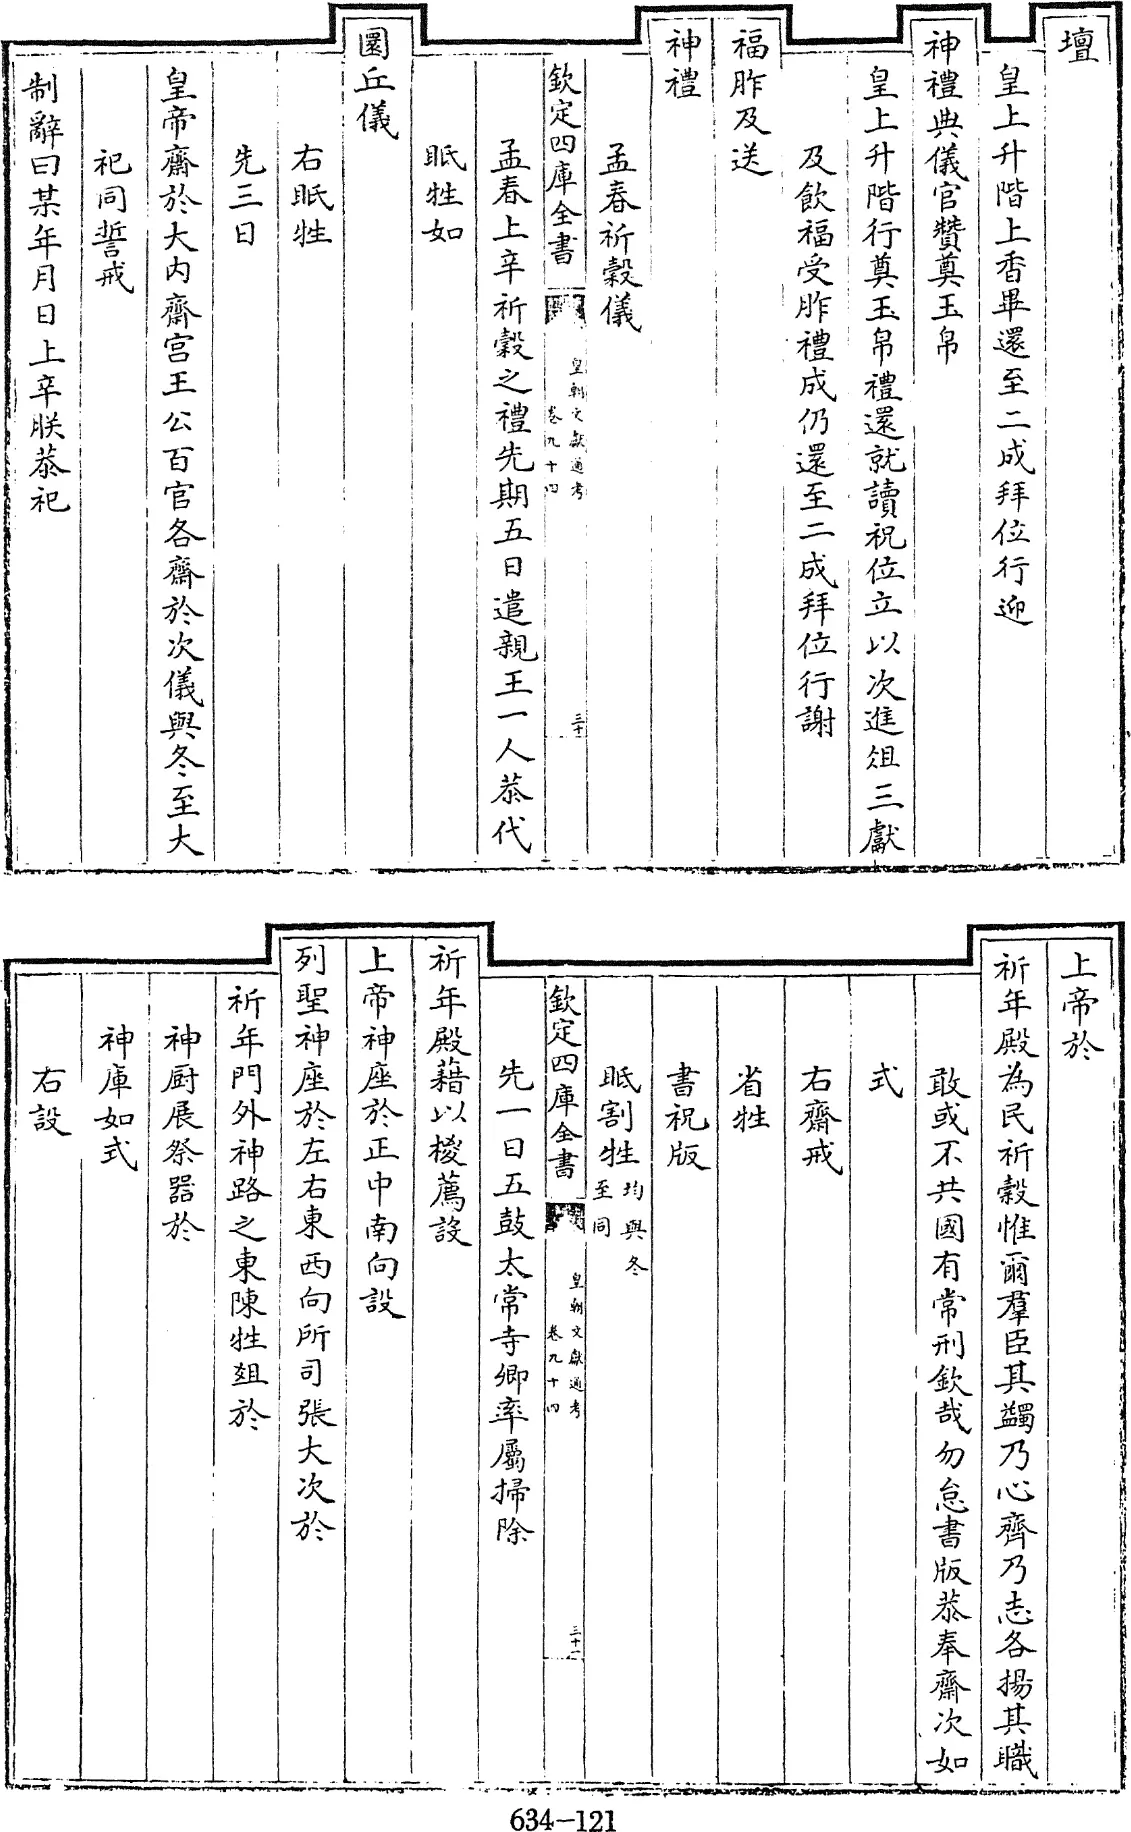 壇
皇上升階上香畢還至二成拜位行迎
神禮典儀官贊奠玉帛
皇上升階行奠玉帛禮還就讀祝位立以次進俎三獻
及飲福受胙禮成仍還至二成拜位行謝
福胙及送
神禮
孟春祈穀儀
欽定四庫全書
皇朝文獻通考
卷九十四
三十
孟春上辛祈穀之禮先期五日遣親王一人恭代
眡牲如
圜丘儀
右眡牲
先三日
皇帝齋於大内齋宫王公百官各齋於次儀與冬至大
祀同誓戒
制辭曰某年月日上辛朕恭祀
上帝於
祈年殿為民祈穀惟爾羣臣其蠲乃心齊乃志各揚其職
敢或不共國有常刑欽哉勿怠書版恭奉齋次如
式
右齋戒
省牲
書祝版
眡割牲均與冬至同
欽定四庫全書
皇朝文獻通考
卷九十四
三十一
先一日五鼓太常寺卿率屬掃除
祈年殿藉以椶薦設
上帝神座於正中南向設
列聖神座於左右東西向所司張大次於
祈年門外神路之東陳牲俎於
神厨展祭器於
神庫如式
右設
634-121